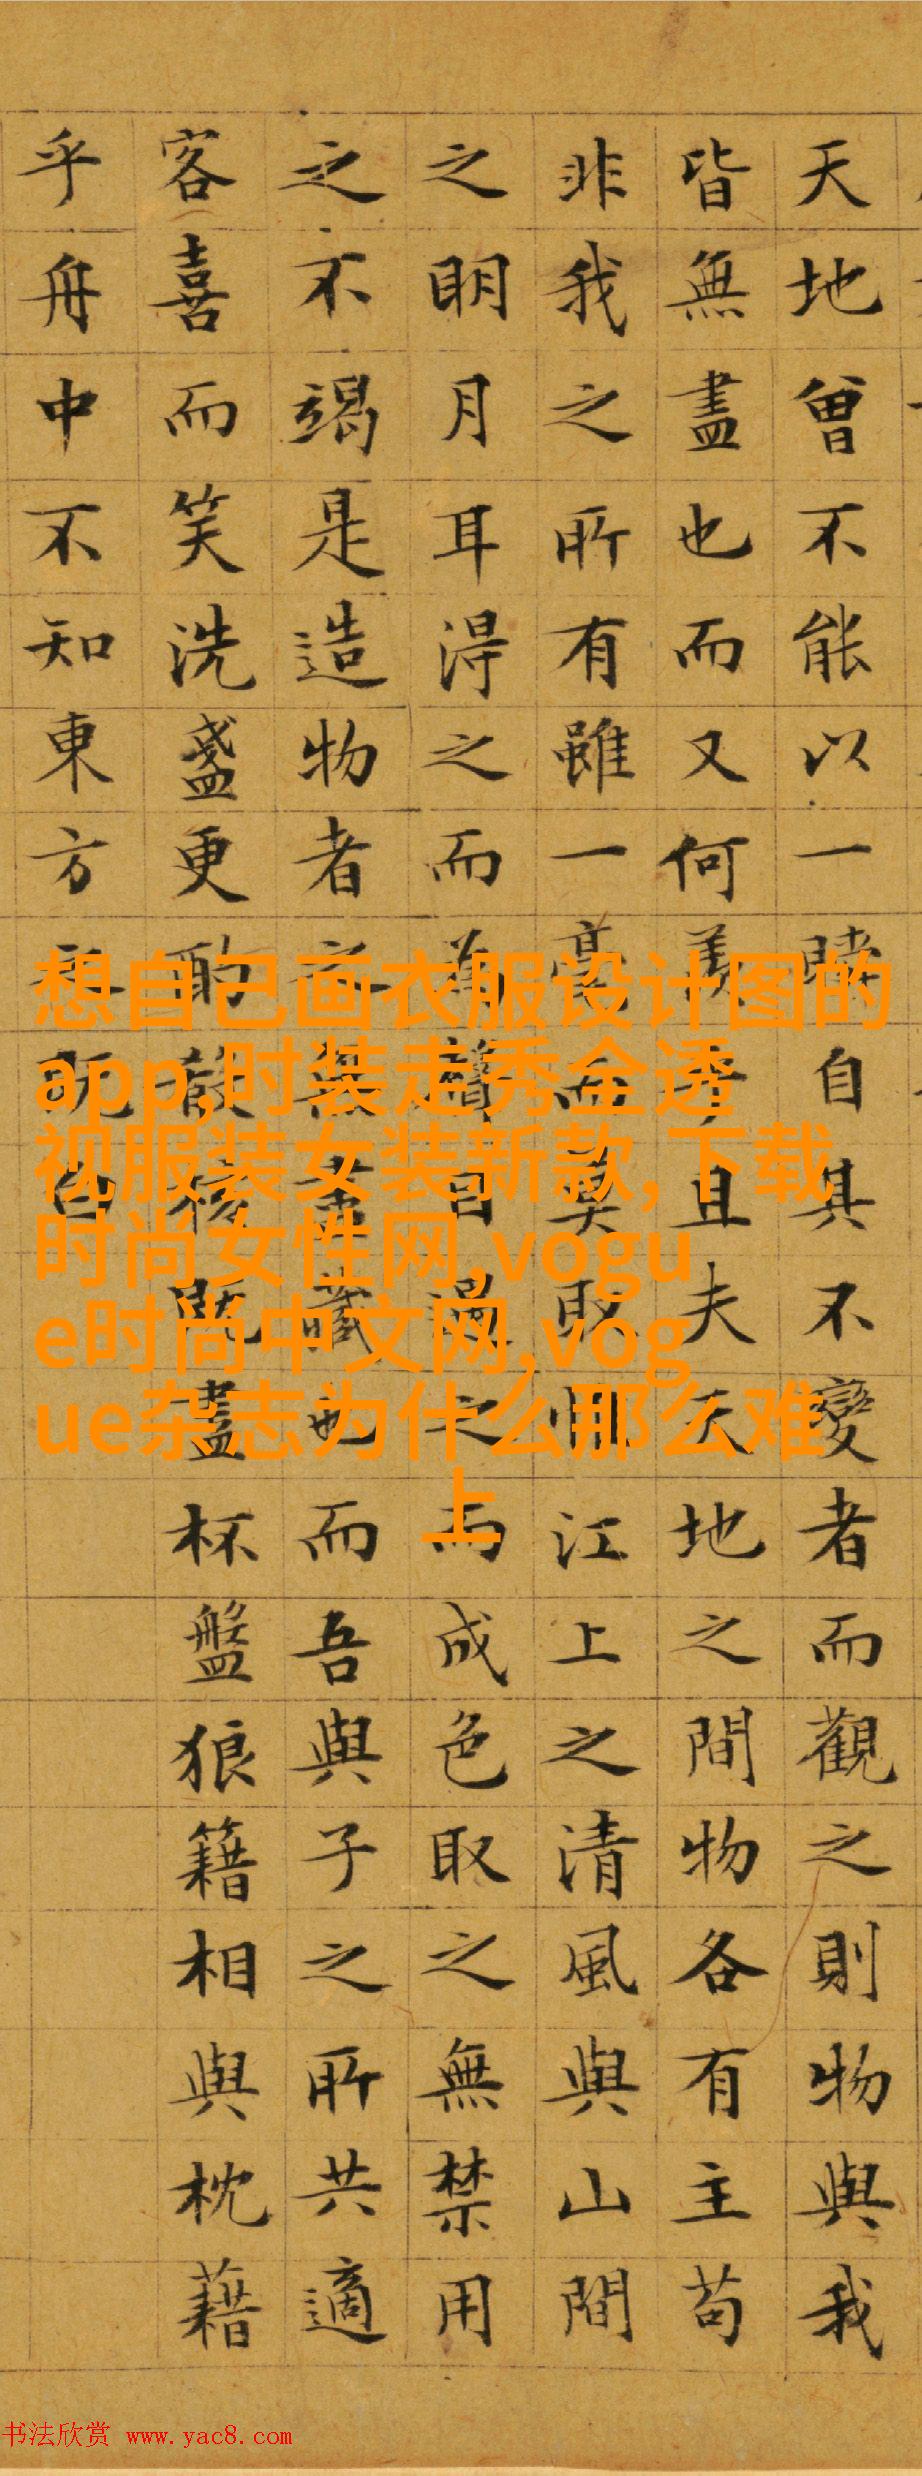 天地曾不能以一瞬自其不變者而觀之則物與我
皆無盡也而又何羡乎且夫天地之間物各有主苟
非我之所有雖一毫而莫取惟江上之清風與山間
之明月耳得之而為聲目遇之而成色取之無禁用
之不竭是造物者之無盡藏也而吾與子之所共適
客喜而笑洗盞更酌殽核既盡杯盤狼籍相與枕藉
乎舟中不知東方之既白
想自己画衣服设计图的
app,时装走秀金透
视服装女装新款,下载
时尚女性网,vogu
e时尚中文网,vog
ue杂志为什么那么难
上
书法欣赏 www.yac8.com